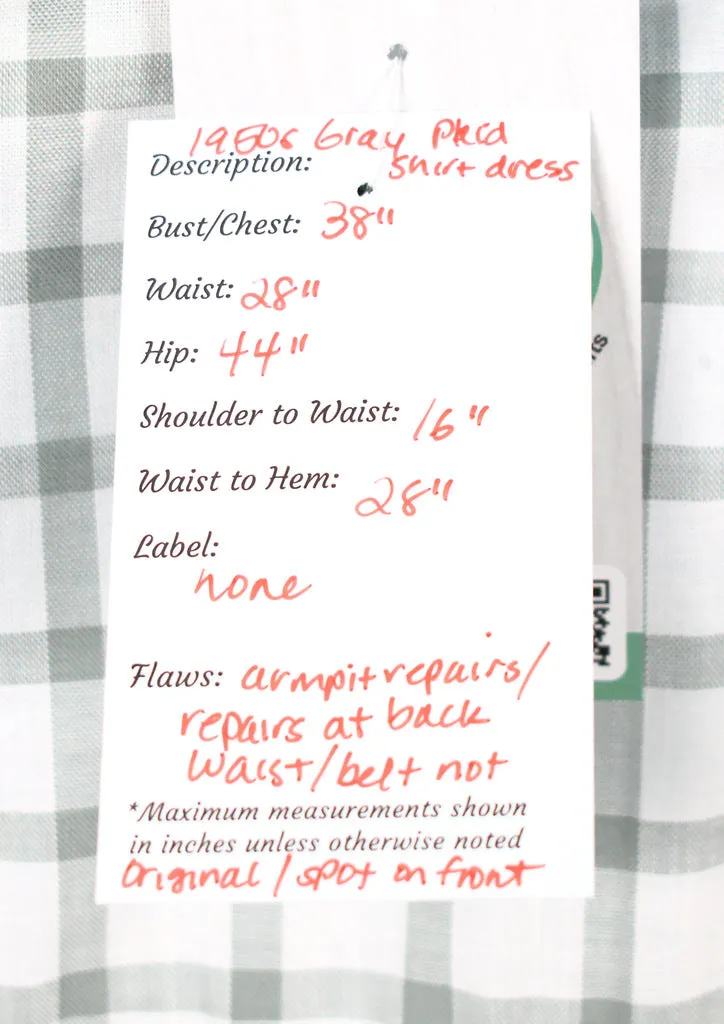 1950s Gray Plaid
Description: Shirt dress
Bust/Chest: 38"
Waist: 28"
Hip: 44"
Shoulder to Waist: 16"
Waist to Hem: 28"
Label:
none
Flaws: armpit repairs/
repairs at back
waist/belt not
*Maximum measurements shown
in inches unless otherwise noted
Original/spot on front